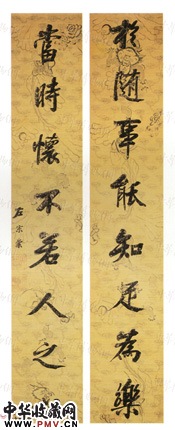 於随事能知足為樂
當時懷不若人之
左宗棠
中华收藏网
www.PMV.cn